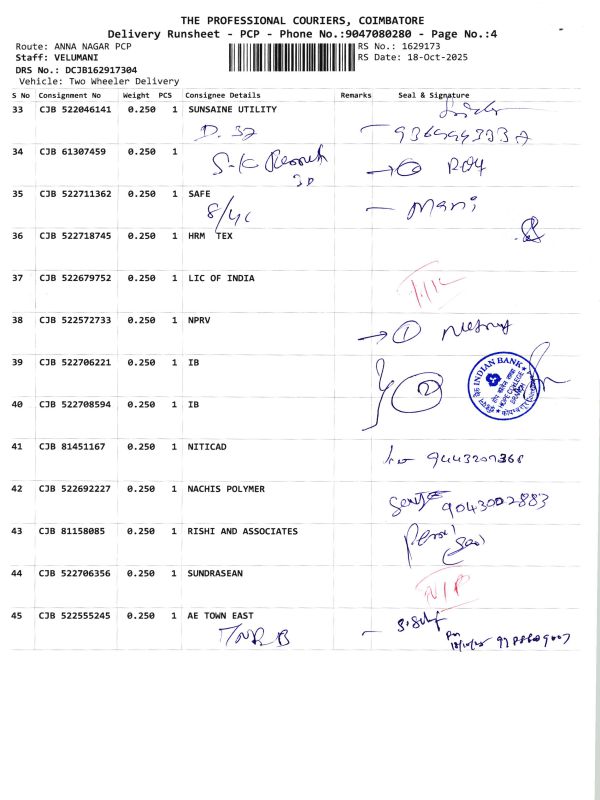 THE PROFESSIONAL COURIERS, COIMBATORE
Delivery Runsheet - PCP - Phone No.:9047080280 - Page No.:4
Route: ANNA NAGAR PCP RS No.: 1629173
Staff: VELUMANI RS Date: 18-Oct-2025
DRS No.: DCJB162917304
Vehicle: Two Wheeler Delivery
S No Consignment No Weight PCS Consignee Details Remarks Seal & Signature
33 CJB 522046141 0.250 1 SUNSAINE UTILITY
D. 37
34 CJB 61307459 0.250 1
S-K
35 CJB 522711362 0.250 1 SAFE
8/41 Mani
36 CJB 522718745 0.250 1 HRM TEX
37 CJB 522679752 0.250 1 LIC OF INDIA
38 CJB 522572733 0.250 1 NPRV
1
39 CJB 522706221 0.250 1 IB
2 INDIAN BANK
HOPE COLLEGE
BRANCH
40 CJB 522708594 0.250 1 IB
41 CJB 81451167 0.250 1 NITICAD
9443207368
42 CJB 522692227 0.250 1 NACHIS POLYMER
9043002883
43 CJB 81158085 0.250 1 RISHI AND ASSOCIATES
44 CJB 522706356 0.250 1 SUNDRASEAN
N/P
45 CJB 522555245 0.250 1 AE TOWN EAST
T/NR B